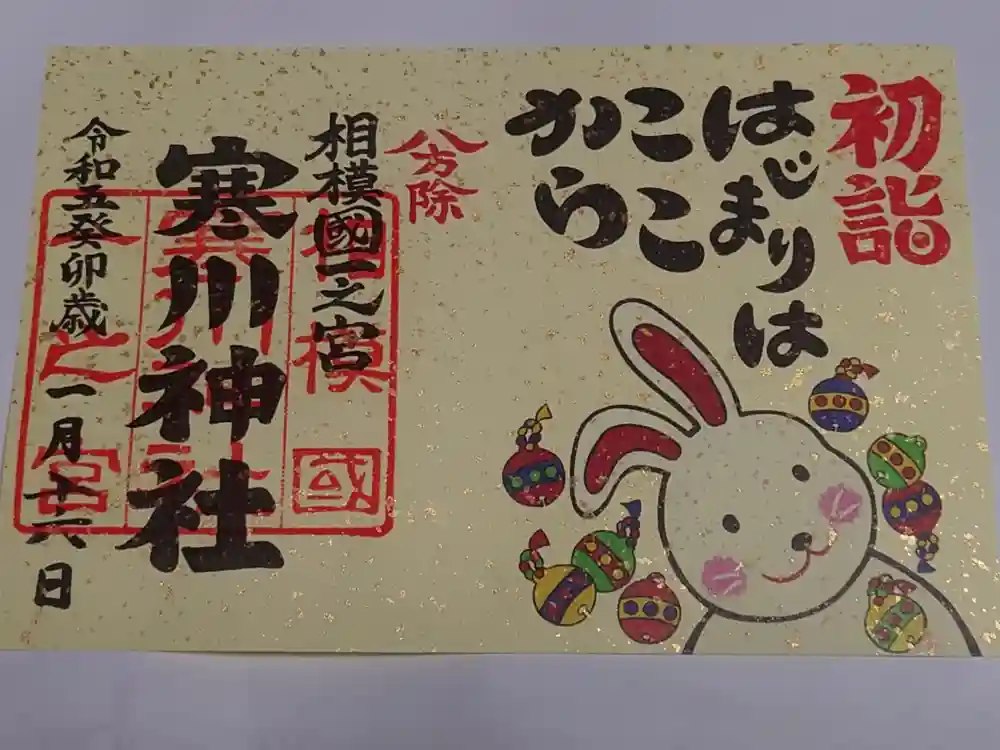 初詣
はじまりは
ここ
から
八方除
相模國一之宮
寒川神社
令和五癸卯歳
一月十六日
相模國
寒川神社
一之宮